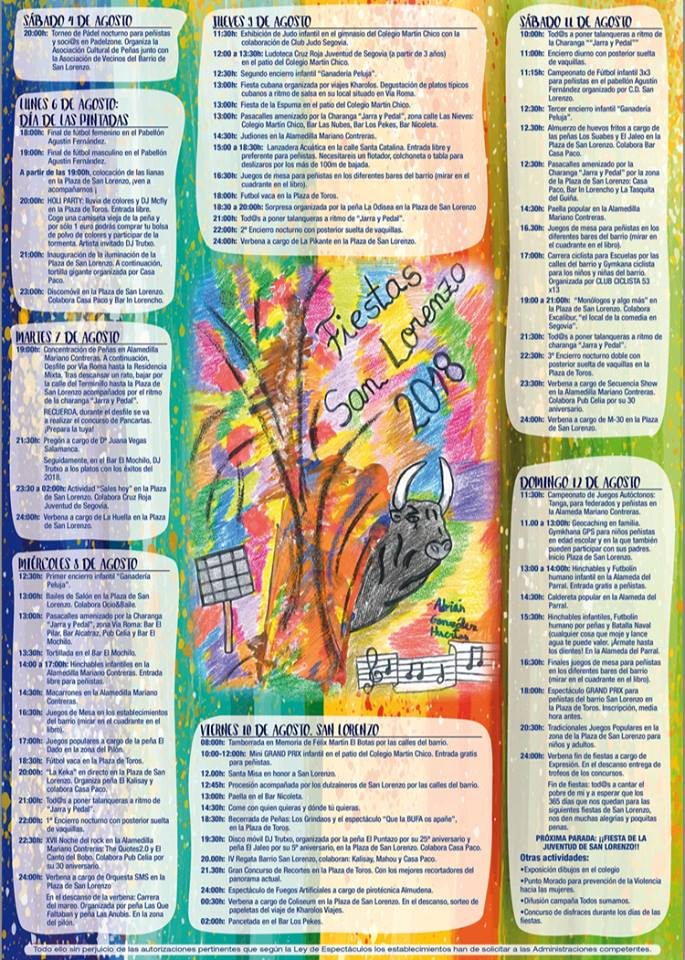 SÁBADO 4 DE AGOSTO
20:00h: Torneo de Pádel nocturno para peñistas
y soci@s en Padelzone. Organiza la
Asociación Cultural de Peñas junto con
la Asociación de Vecinos del Barrio de
San Lorenzo.
LUNES 6 DE AGOSTO:
DÍA DE LAS PINTADAS
18:00h: Final de futbol femenino en el Pabellón
Agustín Fernández.
19:00h: Final de fútbol masculino en el Pabellón
Agustin Fernández.
A partir de las 19:00h, colocación de las lianas
en la Plaza de San Lorenzo, ¡ven a
acompañarnos ¡
20:00h: HOLI PARTY: lluvia de colores y DJ Mcfly
en la Plaza de San Lorenzo. Entrada libre.
Coge una camiseta vieja de la peña y
por sólo 1 euro podrás comprar tu bolsa
de polvo de colores y participar de la
tormenta. Artista invitado DJ Trutxo.
21:00h: Inauguración de la iluminación de la
Plaza de San Lorenzo. A continuación,
tortilla gigante organizada por Casa
Paco.
23:00h: Discomóvil en la Plaza de San Lorenzo.
Colabora Casa Paco y Bar In Lorencho.
MARTES 7 DE AGOSTO
19:00h: Concentración de Peñas en Alamedilla
Mariano Contreras. A continuación,
Desfile por Vía Roma hasta la Residencia
Mixta. Tras descansar un rato, bajar por
la calle del Terminillo hasta la Plaza de
San Lorenzo acompañados por el ritmo
de la charanga "Jarra y Pedal".
RECUERDA, durante el desfile se va
a realizar el concurso de Pancartas.
¡Prepara la tuya!
21:30h: Pregón a cargo de Dª Juana Vegas
Salamanca.
Seguidamente, en el Bar El Mochilo, DJ
Trutxo a los platos con los éxitos del
2018.
23:30 a 02:00h: Actividad "Sales hoy" en la Plaza
de San Lorenzo. Colabora Cruz Roja
Juventud de Segovia.
24:00h: Verbena a cargo de La Huella en la Plaza
de San Lorenzo.
MIÉRCOLES 8 DE AGOSTO
12:30h: Primer encierro infantil "Ganadería
Peluja".
13:00h: Bailes de Salón en la Plaza de San
Lorenzo. Colabora Ocio&Baile.
13:00h: Pasacalles amenizado por la Charanga
"Jarra y Pedal", zona Vía Roma: Bar El
Pilar, Bar Alcatraz, Pub Celia y Bar El
Mochilo.
13:30h: Tortillada en el Bar El Mochilo.
14:00 a 17:00h: Hinchables infantiles en la
Alamedilla Mariano Contreras. Entrada
libre para peñistas.
14:30h: Macarrones en la Alamedilla Mariano
Contreras.
16:30h: Juegos de Mesa en los establecimientos
del barrio (mirar en el cuadrante en el
libro).
17:00h: Juegos populares a cargo de la peña El
Dado en la zona del Pilón.
18:30h: Fútbol vaca en la Plaza de Toros.
20:00h: "La Keka" en directo en la Plaza de San
Lorenzo. Organiza peña El Kalisay y
colabora Casa Paco.
21:00h: Tod@s a poner talanqueras a ritmo de
"Jarra y Pedal".
22:00h: 1º Encierro nocturno con posterior suelta
de vaquillas.
22:30h: XVII Noche del rock en la Alamedilla
Mariano Contreras: The Quotes2.0 y El
Canto del Bobo. Colabora Pub Celia por
su 30 aniversario.
24:00h: Verbena a cargo de Orquesta SMS en la
Plaza de San Lorenzo
En el descanso de la verbena: Carrera
del mareo. Organizada por peña Las Que
Faltaban y peña Las Anubis. En la zona
del pilón.
JUEVES 9 DE AGOSTO
11:30h: Exhibición de Judo infantil en el gimnasio del Colegio Martin Chico con la
colaboración de Club Judo Segovia.
12:00 a 13:30h: Ludoteca Cruz Roja Juventud de Segovia (a partir de 3 años)
en el patio del Colegio Martin Chico.
12:30h: Segundo encierro infantil "Ganadería Peluja".
13:00h: Fiesta cubana organizada por viajes Kharolos. Degustación de platos típicos
cubanos a ritmo de salsa en su local situado en Vía Roma.
13:00h: Fiesta de la Espuma en el patio del Colegio Martin Chico.
13:00h: Pasacalles amenizado por la Charanga "Jarra y Pedal", zona calle Las Nieves:
Colegio Martin Chico, Bar Las Nubes, Bar Los Pekes, Bar Nicoleta.
14:30h: Judiones en la Alamedilla Mariano Contreras.
15:00 a 18:30h: Lanzadera Acuática en la calle Santa Catalina. Entrada libre y
preferente para peñistas. Necesitareis un flotador, colchoneta o tabla para
deslizaros por los más de 100m de bajada.
16:30h: Juegos de mesa para peñistas en los diferentes bares del barrio (mirar en el
cuadrante en el libro).
18:00h: Futbol vaca en la Plaza de Toros.
18:30 a 20:00h: Sorpresa organizada por la peña La Odisea en la Plaza de San Lorenzo
21:00h: Tod@s a poner talanqueras a ritmo de "Jarra y Pedal".
22:00h: 2º Encierro nocturno con posterior suelta de vaquillas.
24:00h: Verbena a cargo de La Pikante en la Plaza de San Lorenzo.
Fiestas
San Lorenzo
2018
Adrián
González
VIERNES 10 DE AGOSTO. SAN LORENZO
08:00h: Tamborrada en Memoria de Félix Martín El Botas por las calles del barrio.
10:00-12:00h: Mini GRAND PRIX infantil en el patio del Colegio Martin Chico. Entrada gratis
para peñistas.
12.00h: Santa Misa en honor a San Lorenzo.
12:45h: Procesión acompañada por los dulzaineros de San Lorenzo por las calles del barrio.
13:00h: Paella en el Bar Nicoleta.
14:30h: Come con quien quieras y dónde tú quieras.
18:30h: Becerrada de Peñas: Los Grindaos y el espectáculo "Que la BUFA os apañe",
en la Plaza de Toros.
19:30h: Disco móvil DJ Trutxo, organizado por la peña El Puntazo por su 25º aniversario y
peña El Jaleo por su 5º aniversario, en la Plaza de San Lorenzo. Colabora Casa Paco.
20.00h: IV Regata Barrio San Lorenzo, colaboran: Kalisay, Mahou y Casa Paco.
21.30h: Gran Concurso de Recortes en la Plaza de Toros. Con los mejores recortadores del
panorama actual.
24:00h: Espectáculo de Fuegos Artificiales a cargo de pirotécnica Almudena.
00:30h: Verbena a cargo de Coliseum en la Plaza de San Lorenzo. En el descanso, sorteo de
papeletas del viaje de Kharolos Viajes.
02:00h: Pancetada en el Bar Los Pekes.
SÁBADO 11 DE AGOSTO
10:00h: Tod@s a poner talanqueras a ritmo de
la Charanga ""Jarra y Pedal""
11:00h: Encierro diurno con posterior suelta de
vaquillas.
11:15h: Campeonato de Fútbol infantil 3x3
para peñistas en el pabellón Agustin
Fernández organizado por C.D. San
Lorenzo.
12:30h: Tercer encierro infantil "Ganadería
Peluja".
12.30h: Almuerzo de huevos fritos a cargo de
las peñas Los Suabes y El Jaleo en la
Plaza de San Lorenzo. Colabora Bar
Casa Paco.
12:30h: Pasacalles amenizado por la
Charanga "Jarra y Pedal" por la zona
de la Plaza de San Lorenzo: Casa
Paco, Bar In Lorencho y La Tasquita
del Guiña.
14:30h: Paella popular en la Alamedilla
Mariano Contreras.
16.30h: Juegos de mesa para peñistas en los
diferentes bares del barrio (mirar en
el cuadrante en el libro).
17:00h: Carrera ciclista para Escuelas por las
calles del barrio y Gymkana ciclista
para los niños y niñas del barrio.
Organizada por CLUB CICLISTA 53
x13
19:00 a 21:00h: "Monólogos y algo más" en
la Plaza de San Lorenzo. Colabora
Excalibur, "el local de la comedia en
Segovia".
21:30h: Tod@s a poner talanqueras a ritmo de
charanga "Jarra y Pedal".
22:30h: 3º Encierro nocturno doble con
posterior suelta de vaquillas en la
Plaza de Toros.
23:30h: Verbena a cargo de Secuencia Show
en la Alamedilla Mariano Contreras.
Colabora Pub Celia por su 30
aniversario.
24:00h: Verbena a cargo de M-30 en la Plaza
de San Lorenzo.
DOMINGO 12 DE AGOSTO
11:30h: Campeonato de Juegos Autóctonos:
Tanga, para federados y peñistas en
la Alameda Mariano Contreras.
11.00 a 13:00h: Geocaching en familia.
Gymkhana GPS para niños peñistas
en edad escolar y en la que también
pueden participar con sus padres.
Inicio Plaza de San Lorenzo.
13:00 a 14:00h: Hinchables y Futbolín
humano infantil en la Alameda del
Parral. Entrada gratis a peñistas.
14:30h: Caldereta popular en la Alameda del
Parral.
15:30h: Hinchables infantiles, Futbolín
humano por peñas y Batalla Naval
(cualquier cosa que moje y lance
agua te puede valer. ¡Ármate hasta
los dientes! En la Alameda del Parral.
16:30h: Finales juegos de mesa para peñistas
en los diferentes bares del barrio
(mirar en el cuadrante en el libro).
18:00h: Espectáculo GRAND PRIX para
peñistas del barrio San Lorenzo en
la Plaza de Toros. Inscripción, media
hora antes.
20:30h: Tradicionales Juegos Populares en la
zona de la Plaza de San Lorenzo para
niños y adultos.
24:00h: Verbena fin de fiestas a cargo de
Expresión. En el descanso entrega de
trofeos de los concursos.
Fin de fiestas: tod@s a cantar el
pobre de mi y a esperar que los
365 días que nos quedan para las
siguientes fiestas de San Lorenzo,
nos den muchas alegrías y poquitas
penas.
PRÓXIMA PARADA: ¡¡FIESTA DE LA
JUVENTUD DE SAN LORENZO!!
Otras actividades:
•Exposición dibujos en el colegio
•Punto Morado para prevención de la Violencia
hacia las mujeres.
•Difusión campaña Todos sumamos.
•Concurso de disfraces durante los días de las
fiestas.
Todo ello sin perjuicio de las autorizaciones pertinentes que según la Ley de Espectáculos los establecimientos han de solicitar a las Administraciones competentes.